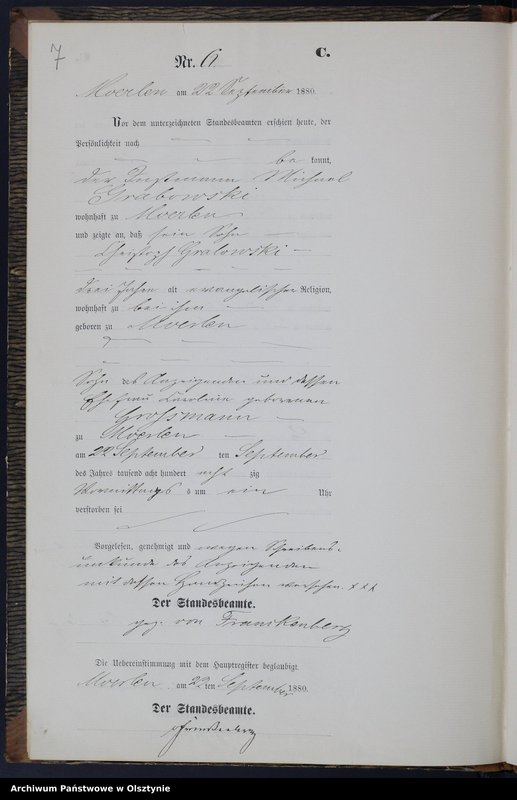 7
Nr. 6
C.
Moerlen am 22 September 1880.
Vor dem unterzeichneten Standesbeamten erschien heute, der
Persönlichkeit nach
be kannt,
der Instmann Michael
Grabowski
wohnhaft zu Moerlen
und zeigte an, daß sein Sohn
Christoph Grabowski
drei Jahre alt evangelischer Religion,
wohnhaft zu bei ihm
geboren zu Moerlen
Sohn des Anzeigenden und dessen
Ehefrau geborenen
Grossmann
zu Moerlen
am 22 September ten September
des Jahres tausend acht hundert acht zig
Vormittags s um ein Uhr
verstorben sei
Vorgelesen, genehmigt und wegen Schreibens-
unkunde des Anzeigenden
mit dessen Handzeichen versehen. x x x
Der Standesbeamte.
gez. von Frankenberg
Die Uebereinstimmung mit dem Hauptregister beglaubigt
Moerlen am 22 ten September 1880.
Der Standesbeamte.
vFrankenberg
Archiwum Państwowe w Olsztynie